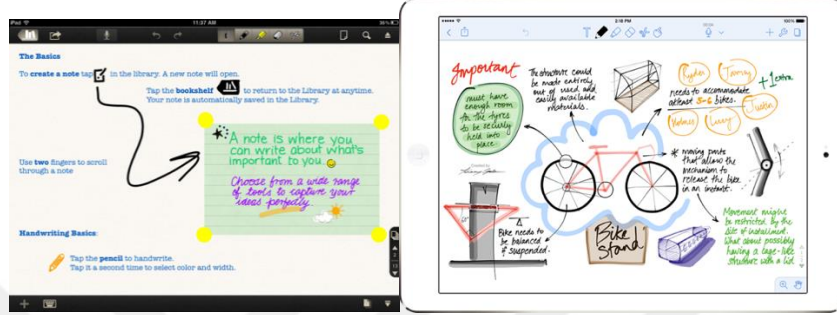 iPad
11:37 AM
The Basics
To create a note tap in the library. A new note will open.
Tap the bookshelf to return to the Library at anytime.
Your note is automatically saved in the Library.
A note is where you
can write about what's
important to you.
Choose from a wide range
of tools to capture your
ideas perfectly.
Use two fingers to scroll
through a note
Handwriting Basics:
Tap the pencil to handwrite.
Tap it a second time to select color and width.
2:18 PM
100%
Important
must have
enough room
for the tyres
to be securely
held into
place.
The structure could
be made entirely
out of used and
easily available
materials.
Ryder
Tammy
+1 extra
needs to accommodate
atleast 5-6 bikes.
Lucy
Justin
* moving parts
that allow the
mechanism to
release the bike
in an instant.
Bike needs to
be balanced
if suspended.
Bike
Stand
Movement might
be restricted by the
site of installment.
What about possibly
having a cage-like
structure with a lid